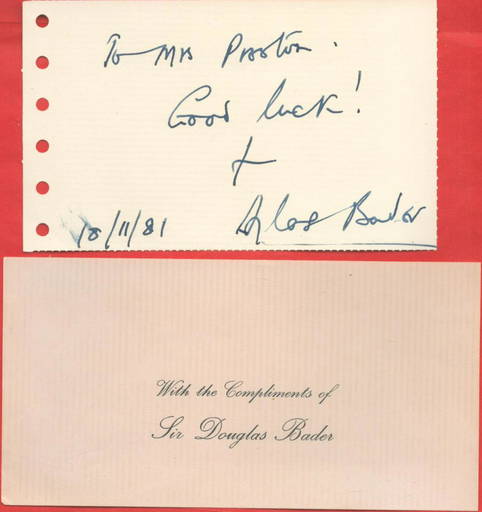 To Mrs Preston.
Good luck!
+
18/11/81 Douglas Bader
With the Compliments of
Sir Douglas Bader